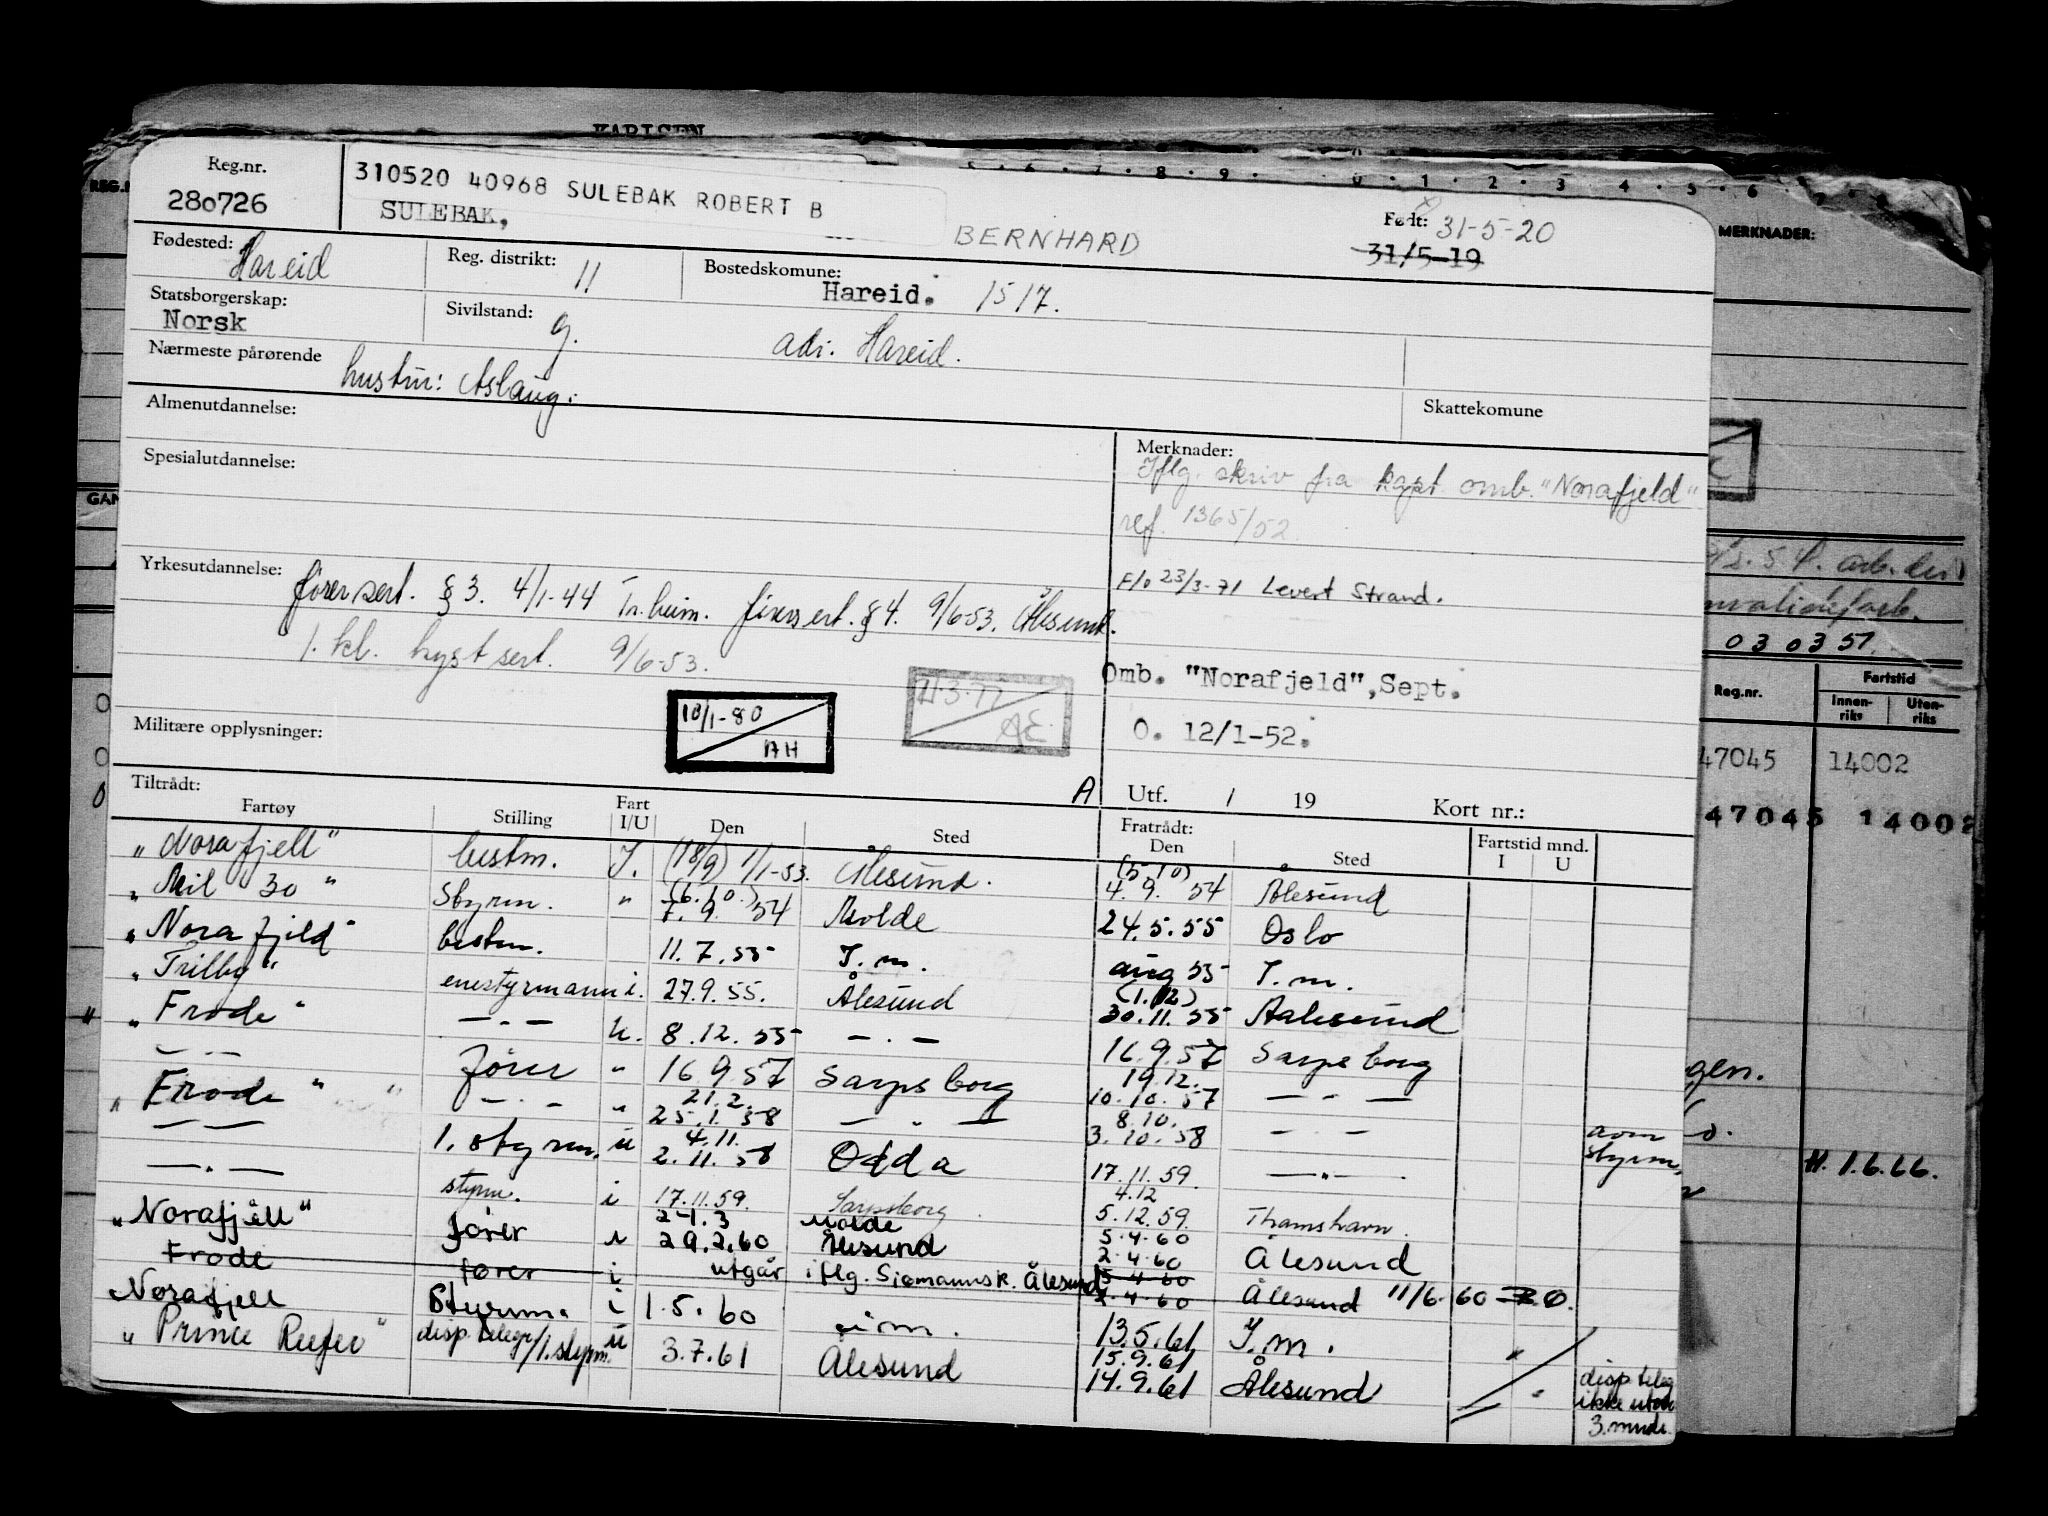 KARLSEN
Reg.nr. 280726
310520 40968 SULEBAK ROBERT B
SULEBAK, BERNHARD
Født: 31-5-20
31/5-19
MERKNADER:
Fødested: Hareid
Reg. distrikt: 11
Bostedskomune: Hareid. 1517.
Statsborgerskap: Norsk
Sivilstand: g.
adr. Hareid.
Nærmeste pårørende
hustru: Aslaug.
Skattekomune
Almenutdannelse:
Spesialutdannelse:
Merknader:
Iflg. skriv fra kapt omb. "Norafjeld"
ref. 1365/52
F/o 23/3-71 Levert Strand.
Yrkesutdannelse: førersert. § 3. 4/1-44 Tr.heim. førersert. § 4. 9/6-53. Ålesund.
1. kl. kystsert. 9/6-53.
Omb. "Norafjeld", Sept.
O. 12/1-52.
10/1-80
AH
11-3-77
AE
Militære opplysninger:
030357
Reg.nr. Fartstid
Innen-riks Uten-riks
47045 14002
47045 14002
H. 1.6.66.
Tiltrådt: A Utf. / 19 Kort nr.:
Fartøy Stilling Fart I/U Den Sted Fratrådt: Den Sted Fartstid mnd. I U
"Norafjell" bestm. I. (18/9) 1/1-53. Ålesund. (5.10) 4.9. 54 Ålesund
"Mil 30" Styrm. " (6.10.) 7.9. 54 Molde 24.5.55 Oslo
"Norafjeld" bestm. 11.7.55 I.m. aug 55 I.m.
"Trilby" enestyrmann i. 27.9.55. Ålesund (1.12) 30.11.55 Aalesund
"Frode" — . — u. 8.12.55 — . — 16.9.57 Sarpsborg
— . — fører " 16.9.57 Sarpsborg 19.12. 10.10.57 — . —
"Frode" — . — " 21.2. 25.1.58 — . — 8.10. 3.10.58 — . —
— . — 1. styrm. u 4.11. 2.11.58 Odda 17.11.59. — " — som styrm.
— . — styrm. i 17.11.59. Sarpsborg 4.12 5.12.59. Thamshavn.
"Norafjell" fører " 2-1.3 29.2.60 Molde Ålesund 5.4.60 2.4.60 Ålesund
Frode fører i utgår iflg. Sjømannsk. Ålesund 5-4-60 2.4.60 Ålesund 11/6-60
Norafjell Styrm. i 1.5.60 i.m. 13.5.61 I.m. "
"Prince Reefer" disp telegr/1.styrm. u 3.7.61 Ålesund 15.9.61 14.9.61 Ålesund " disp teleg ikke utover 3. mnde.